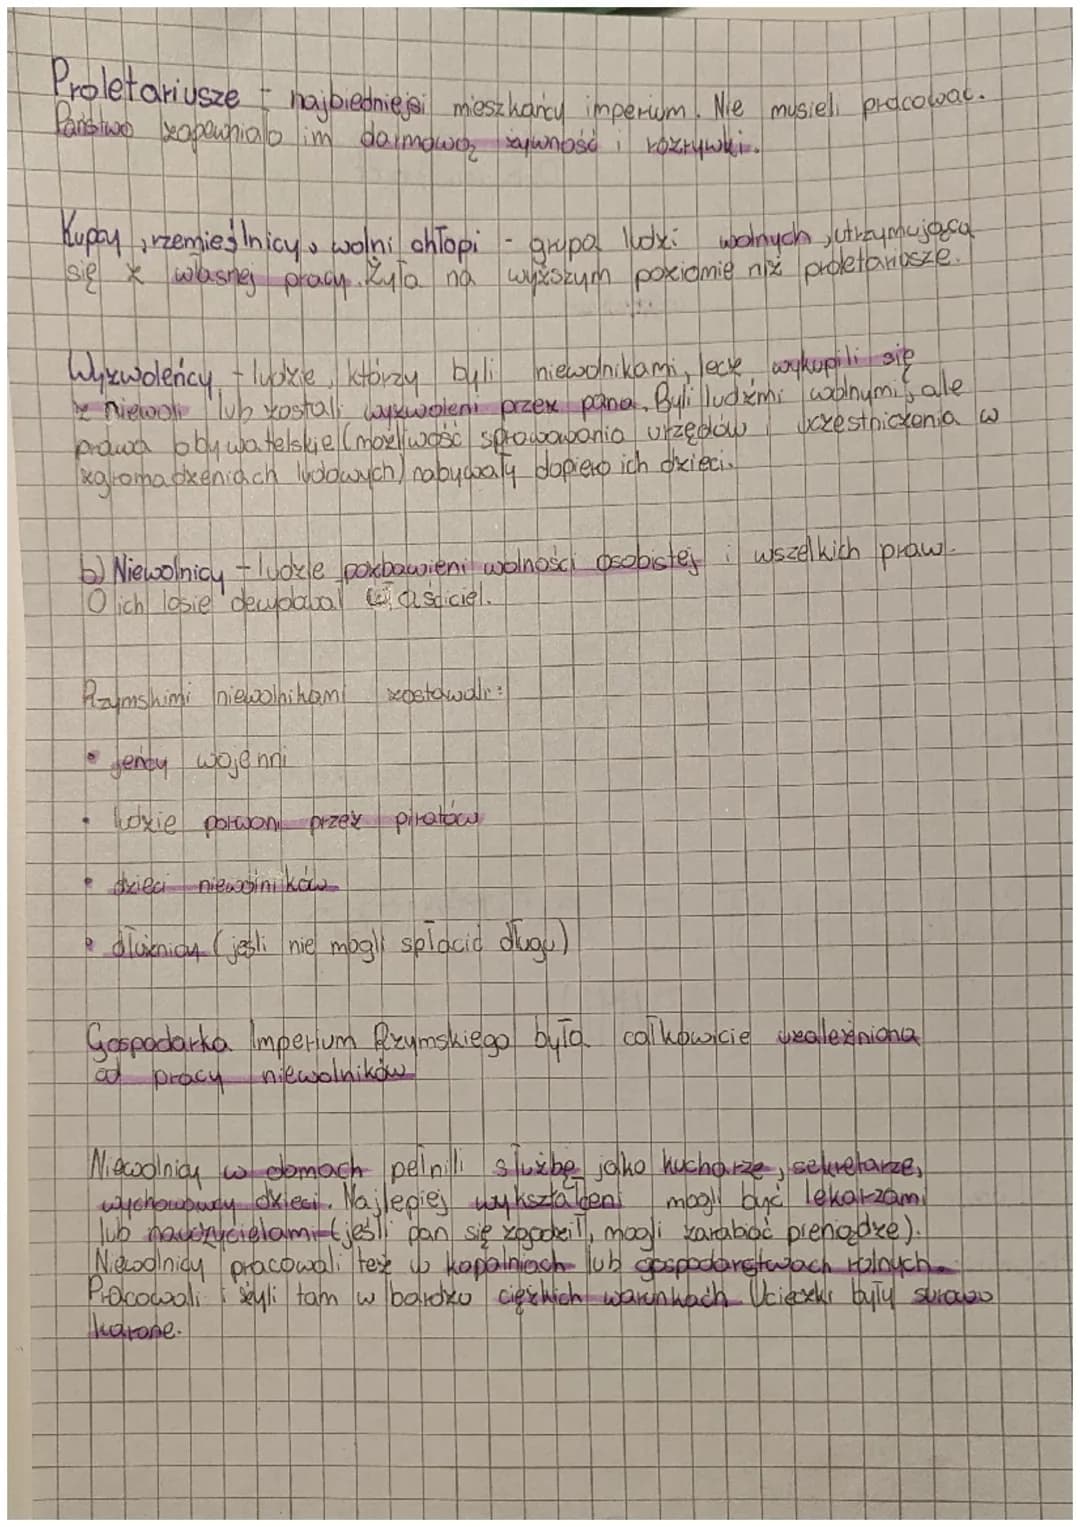 Proletariusze - najbiedniejsi mieszkańcy imperium. Nie musieli pracować.
Państwo zapewniało im darmową żywność i rozrywki.
Kupcy, rzemieślnicy, wolni chłopi - grupa ludzi wolnych, utrzymująca
się z własnej pracy. Żyła na wyższym poziomie niż proletariusze.
Wyzwoleńcy - ludzie, którzy byli niewolnikami, lecz wykupili się
z niewoli lub zostali wyzwoleni przez pana. Byli ludźmi wolnymi, ale
prawa obywatelskie (możliwość sprawowania urzędów i uczestniczenia w
zgromadzeniach ludowych) nabywały dopiero ich dzieci.
b) Niewolnicy - ludzie pozbawieni wolności osobistej i wszelkich praw.
O ich losie decydował właściciel.
Rzymskimi niewolnikami zostawali:
• jeńcy wojenni
• ludzie porwani przez piratów
• dzieci niewolników
• dłużnicy (jeśli nie mogli spłacić długu)
Gospodarka Imperium Rzymskiego była całkowicie uzależniona
od pracy niewolników
Niewolnicy w domach pełnili służbę jako kucharze, sekretarze,
wychowawcy dzieci. Najlepiej wykształceni mogli być lekarzami
lub nauczycielami (jeśli pan się zgodził, mogli zarabiać pieniądze).
Niewolnicy pracowali też w kopalniach lub gospodarstwach rolnych.
Pracowali i żyli tam w bardzo ciężkich warunkach. Ucieczki były surowo
karane.